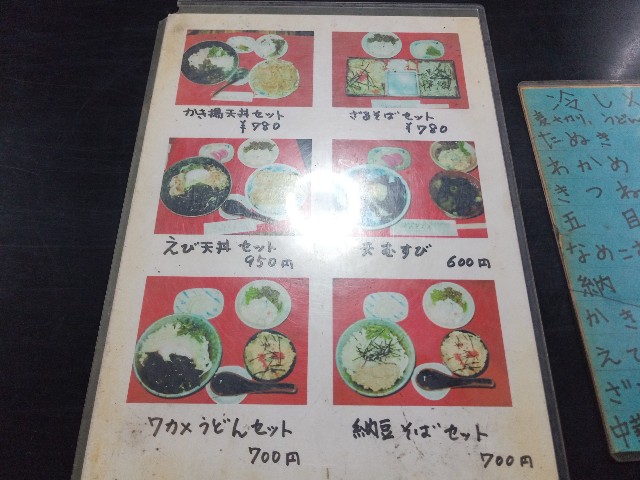 かき揚天丼セット
¥780
ざるそばセット
¥780
えび天丼セット
950円
むすび
600円
ワカメうどんセット
700円
納豆そばセット
700円
冷し
うどん
たぬき
わかめ
きつね
五目
なめこ
納
かき
えび
ざ
中華